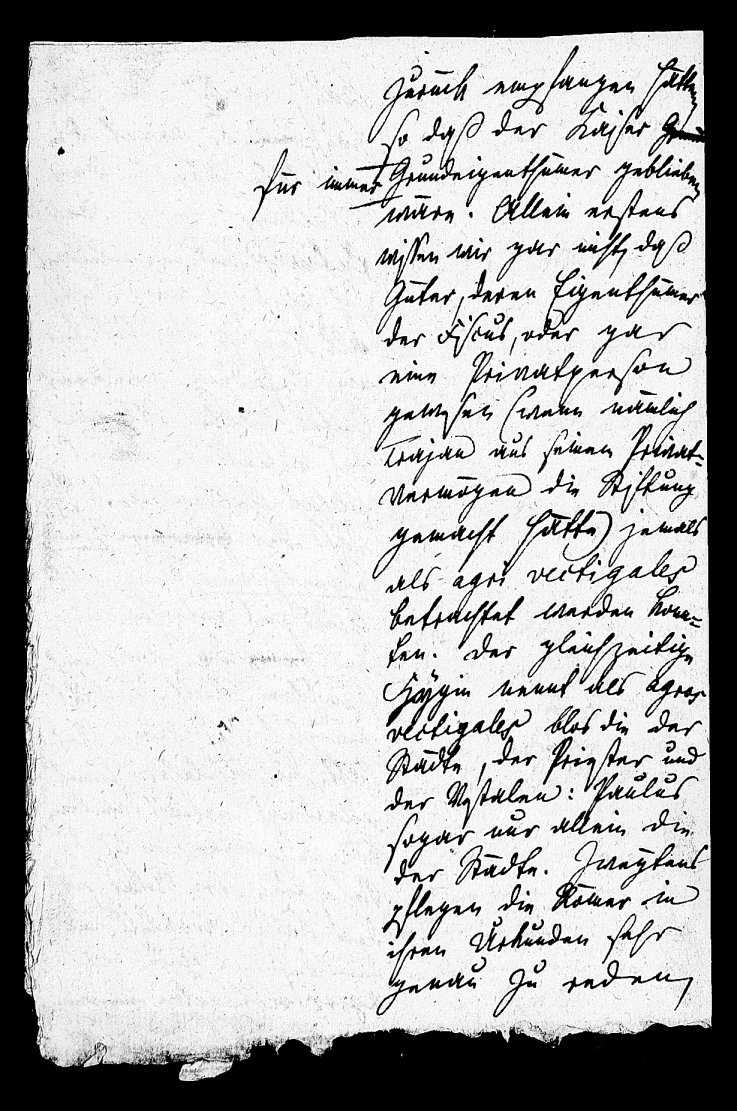 zurück empfangen hätten,
so daß der Kaiser Grund
für immer Grundeigenthümer geblieben
wäre. Allein erstens
wissen wir gar nicht, daß
Güter, deren Eigenthümer
der Fiscus, oder gar
eine Privatperson
gewesen (wenn nämlich
Trajan aus seinem Privat-
vermögen die Stiftung
gemacht hätte) jemals
als agri vectigales
betrachtet werden konn-
ten. Der gleichzeitige
Hygin nennt als agros
vectigales blos die der
Städte, der Priester und
der Vestalen: Paulus
sogar nur allein die
der Städte. Zweytens
pflegen die Römer in
ihren Urkunden sehr
genau zu reden,